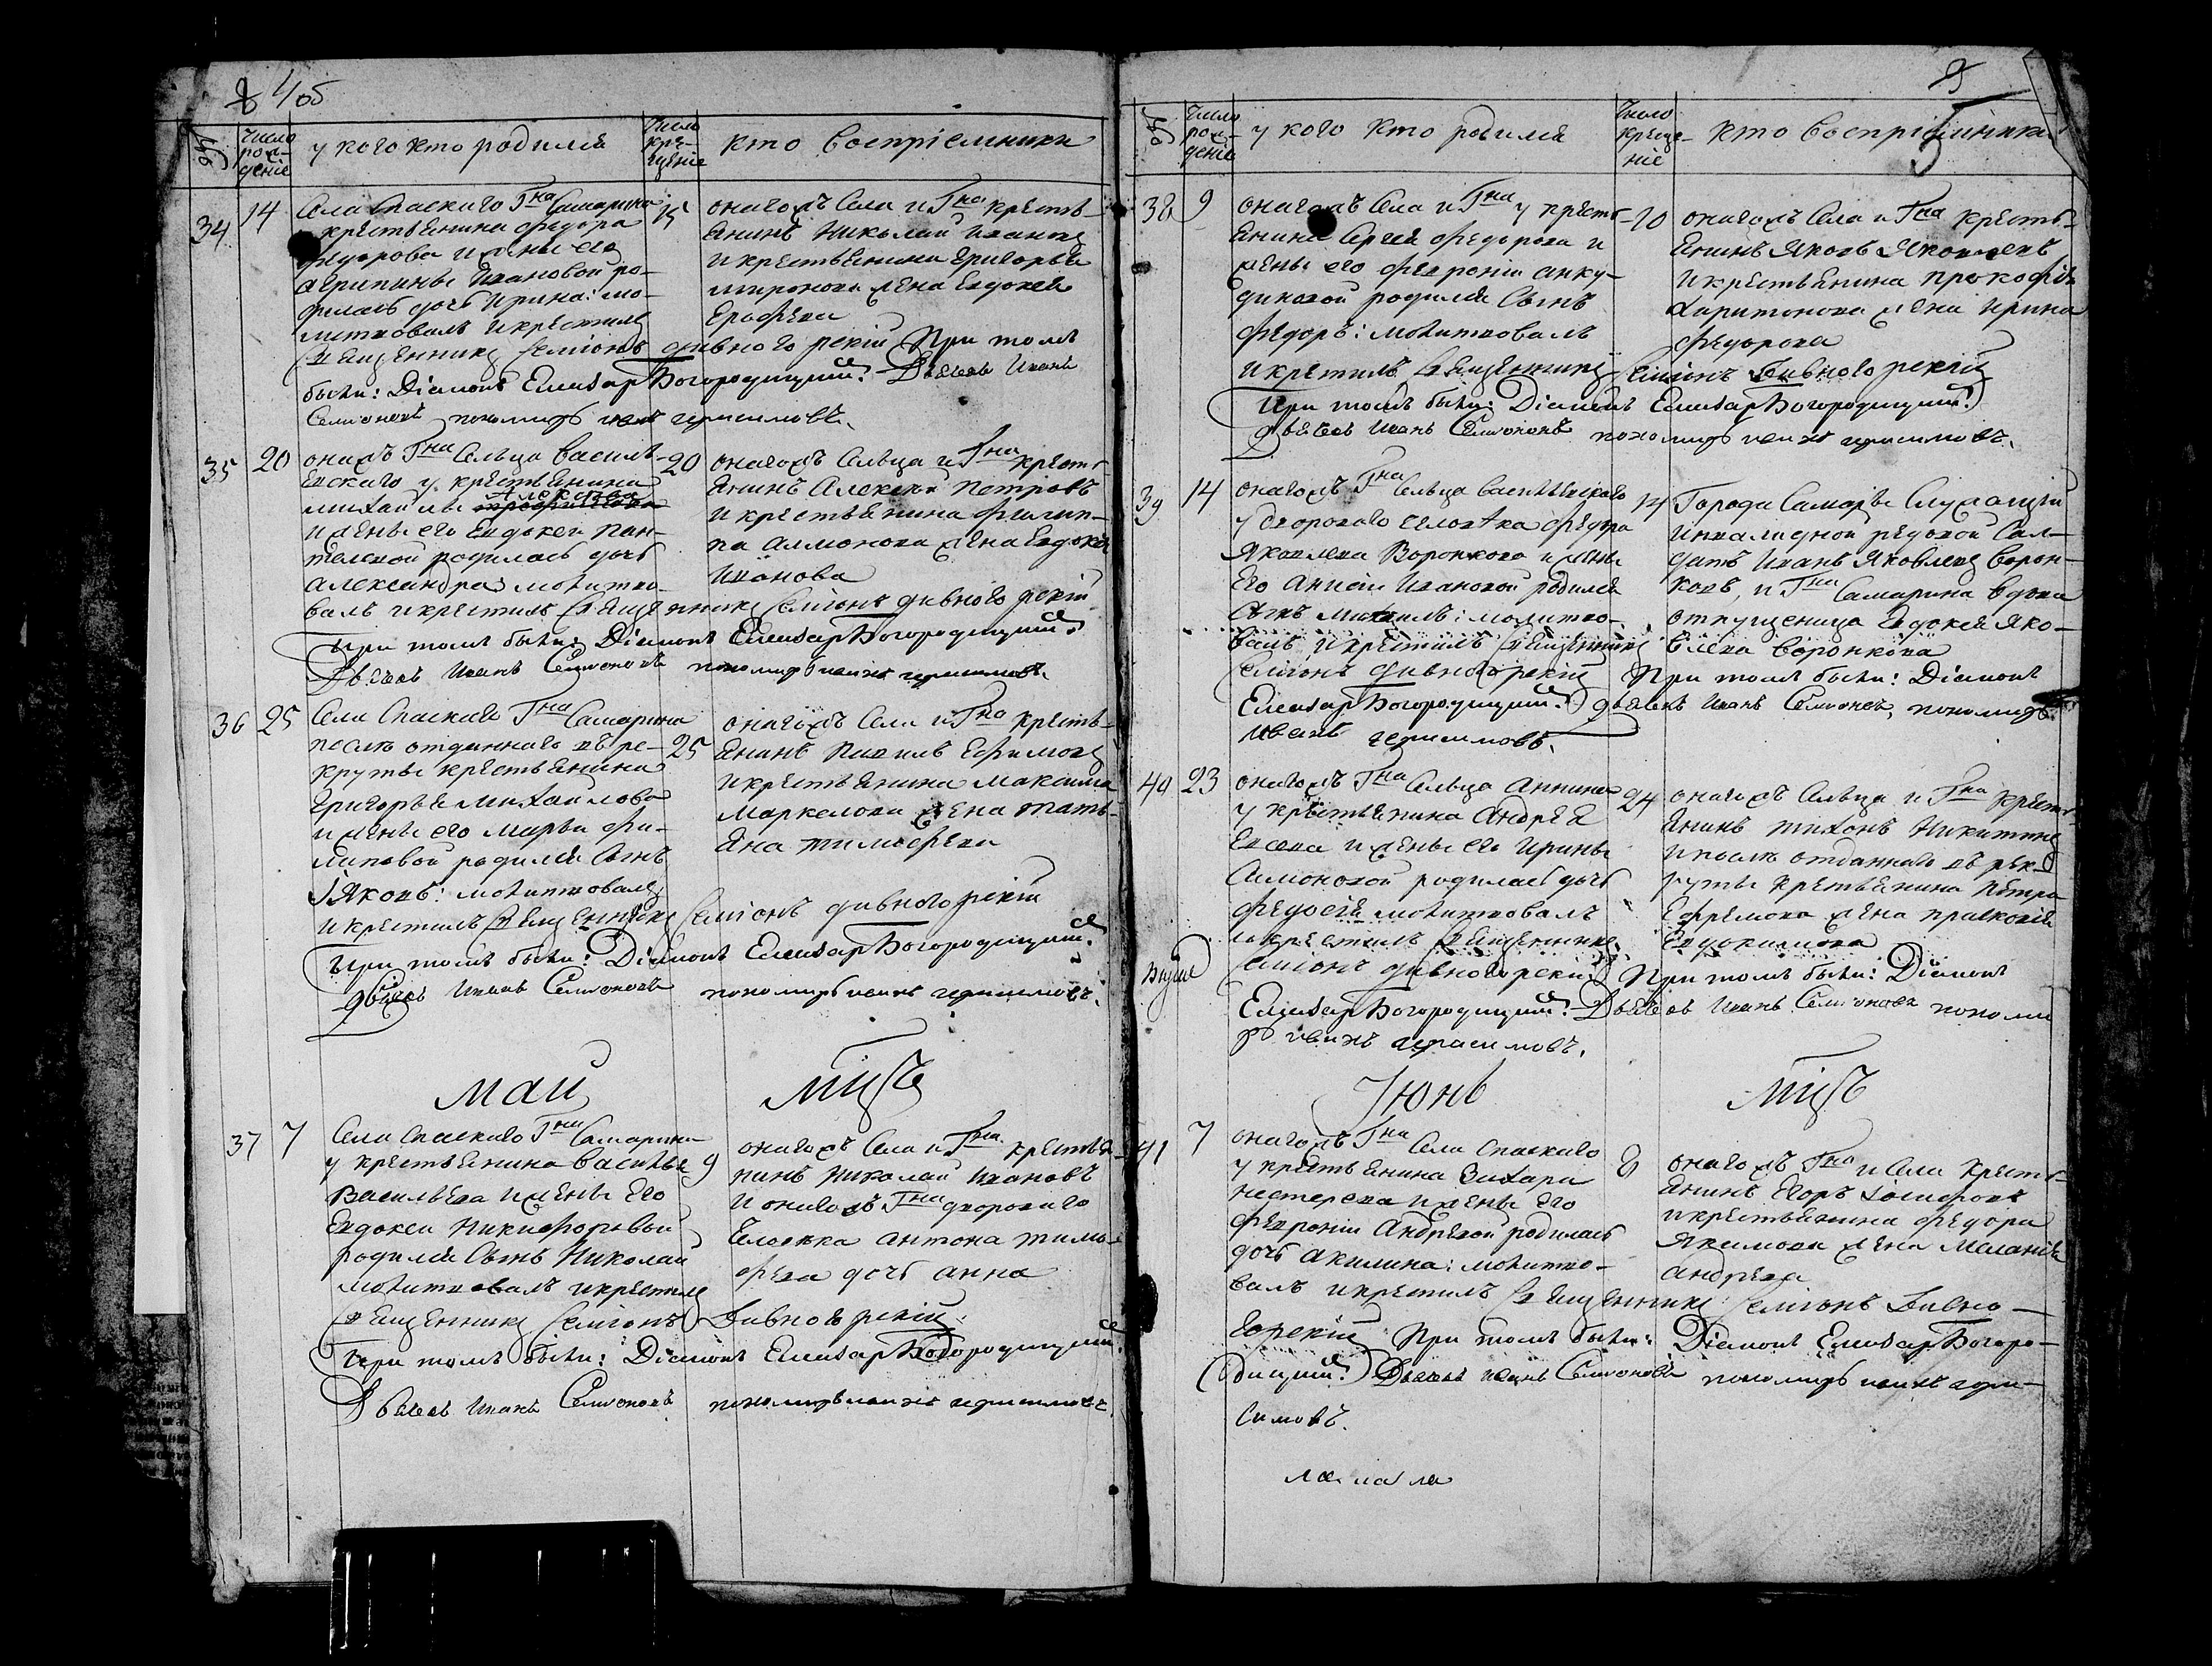 4/об
№
Число рождение
у кого кто родился
Число крещение
кто восприемники
34
14
Села Спаскаго Гна Самарина
у крестьянина Федора
Федорова и жены его
агрипины Ивановой ро-
дилась дочь Ирина: мо-
литвовалъ и крестилъ
Священникъ Семіонъ Дивногорскій При томъ
были: Діаконъ Елизаръ Богородицкій. Дьячекъ Иванъ
Семионовъ пономарь иванъ герасимовъ.
15
онагожъ Села и Гна кресть-
янинъ Николай Ивановъ
и крестьянина Григорья
миронова жена Евдокея
Ерофеева
35
20
онагожъ Гна Сельца Василь-
евскаго у крестьянина
михаилы Алексеева
и жены его Евдокеи пан-
телеевой родилась дочь
александра молитво-
валъ и крестилъ Священникъ Семіонъ дивногорскій
При томъ были: Діаконъ Елизаръ Богородицкій.
Дьячекъ Иванъ Семионовъ пономарь иванъ герасимовъ.
20
онагожъ Сельца и Гна кресть-
янинъ Алексей Петровъ
и крестьянина филип-
па алмонова жена Евдокея
Иванова
36
25
Села Спаскаго Гна Самарина
послѣ отданнаго въ ре-
круты крестьянина
Григорья михаилова
и жены его Марьи фи-
липовой родился Сынъ
Іяковъ: молитвовалъ
и крестилъ Священникъ Семіонъ дивногорскій
При томъ были: Діаконъ Елизаръ Богородицкій.
Дьячекъ Иванъ Семионовъ пономарь иванъ герасимовъ.
25
онагожъ Села и Гна кресть-
янинъ Павилъ Ефимовъ
и крестьянина Максима
Маркелова жена тать-
яна тимофеева
май мцъ
37
7
Села Спаскаго Гна Самарина
у крестьянина Василья
Васильева и жены Его
Евдокеи Никифоровой
родился Сынъ Николай
молитвовалъ и крестилъ
Священникъ Семіонъ Дивногорскій:
При томъ были: Діаконъ Елизаръ Богородицкій.
Дьячекъ Иванъ Семионовъ пономарь иванъ герасимовъ.
9
онагожъ Села и Гна крестья-
нинъ Николай Ивановъ
и онагожъ Гна двороваго
Человека антона тимо-
феева дочь анна
9
№
Число рождение
у кого кто родился
Число крещение
кто восприемники
38
9
онагожъ Села и Гна у кресть-
янина Сергея Федорова и
жены его февронии анку-
диновой родился Сынъ
Федоръ: молитвовалъ
и крестилъ Священникъ Семіонъ Дивногорскій
При томъ были: Діаконъ Елизаръ Богородицкій.
Дьячекъ Иванъ Семионовъ пономарь иванъ герасимовъ.
10
онагожъ Села и Гна кресть-
янинъ Яковъ Яковлевъ
и крестьянина прокофія
Харитонова жена Ирина
федорова
39
14
онагожъ Гна Сельца Васильевскаго
у двороваго человека федора
Яковлева Воронкова и жены
Его анисіи Ивановой родился
Сынъ михаилъ: молитво-
валъ и крестилъ Священникъ
Семіонъ дивногорскій При томъ были: Діаконъ
Елизаръ Богородицкій. дьячекъ Иванъ Семионовъ, пономарь
иванъ герасимовъ.
14
Города Самары Служащій
инвалидной рядовой Сол-
датъ Иванъ Яковлевъ ворон-
ковъ, и Гна Самарина вдова
отпущеница Евдокея Яко-
влева Воронкова
40
23
онагожъ Гна Сельца Аннина
у крестьянина Андрея
Евсева и жены его Ирины
Алмоновой родилась дочь
федосія молитвовалъ
и крестилъ Священникъ
Семіонъ дивногорскій При томъ были: Діаконъ
Елизаръ Богородицкій. Дьячекъ Иванъ Семионовъ понома
рь иванъ герасимовъ.
24
онагожъ Сельца и Гна кресть-
янинъ тихонъ Никитинъ
и послѣ отданнаго въ рек-
руты крестьянина петра
Ефремова жена прасковія
Евдокимова
Іюнь мцъ
41
7
онагожъ Гна Села Спаскаго
у крестьянина Захара
нестерова и жены Его
февроніи Андревой родилась
дочь акилина: молитво-
валъ и крестилъ Священникъ Семіонъ Дивно-
горскій При томъ были: Діаконъ Елизаръ Богоро-
дицкій. Дьячекъ иванъ Семионовъ пономарь иванъ гера-
симовъ.
8
онагожъ Гна и Села кресть-
янинъ Егоръ Іосифовъ
и крестьянина федора
Якимова жена Меланія
андреева